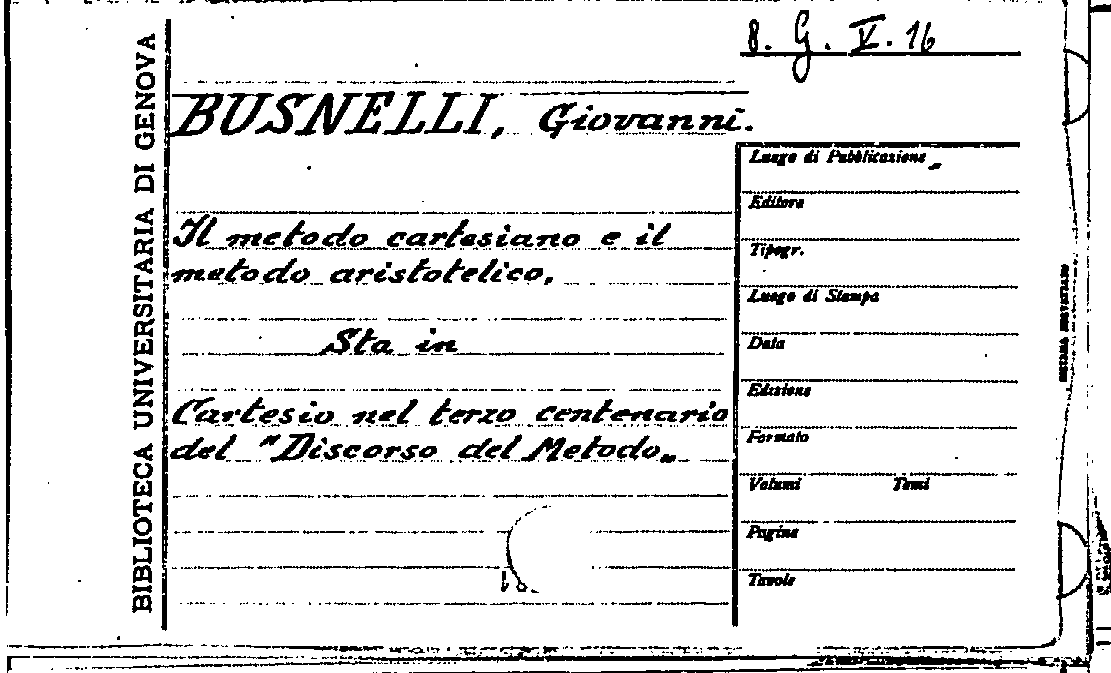 8. G. V. 16
BIBLIOTECA UNIVERSITARIA DI GENOVA
BUSNELLI, Giovanni.
Il metodo cartesiano e il
metodo aristotelico,
Sta in
Cartesio nel terzo centenario
del "Discorso del Metodo„
Luogo di Pubblicazione
Editore
Tipogr.
Luogo di Stampa
Data
Edizione
Formato
Volumi Tomi
Pagine
Tavole